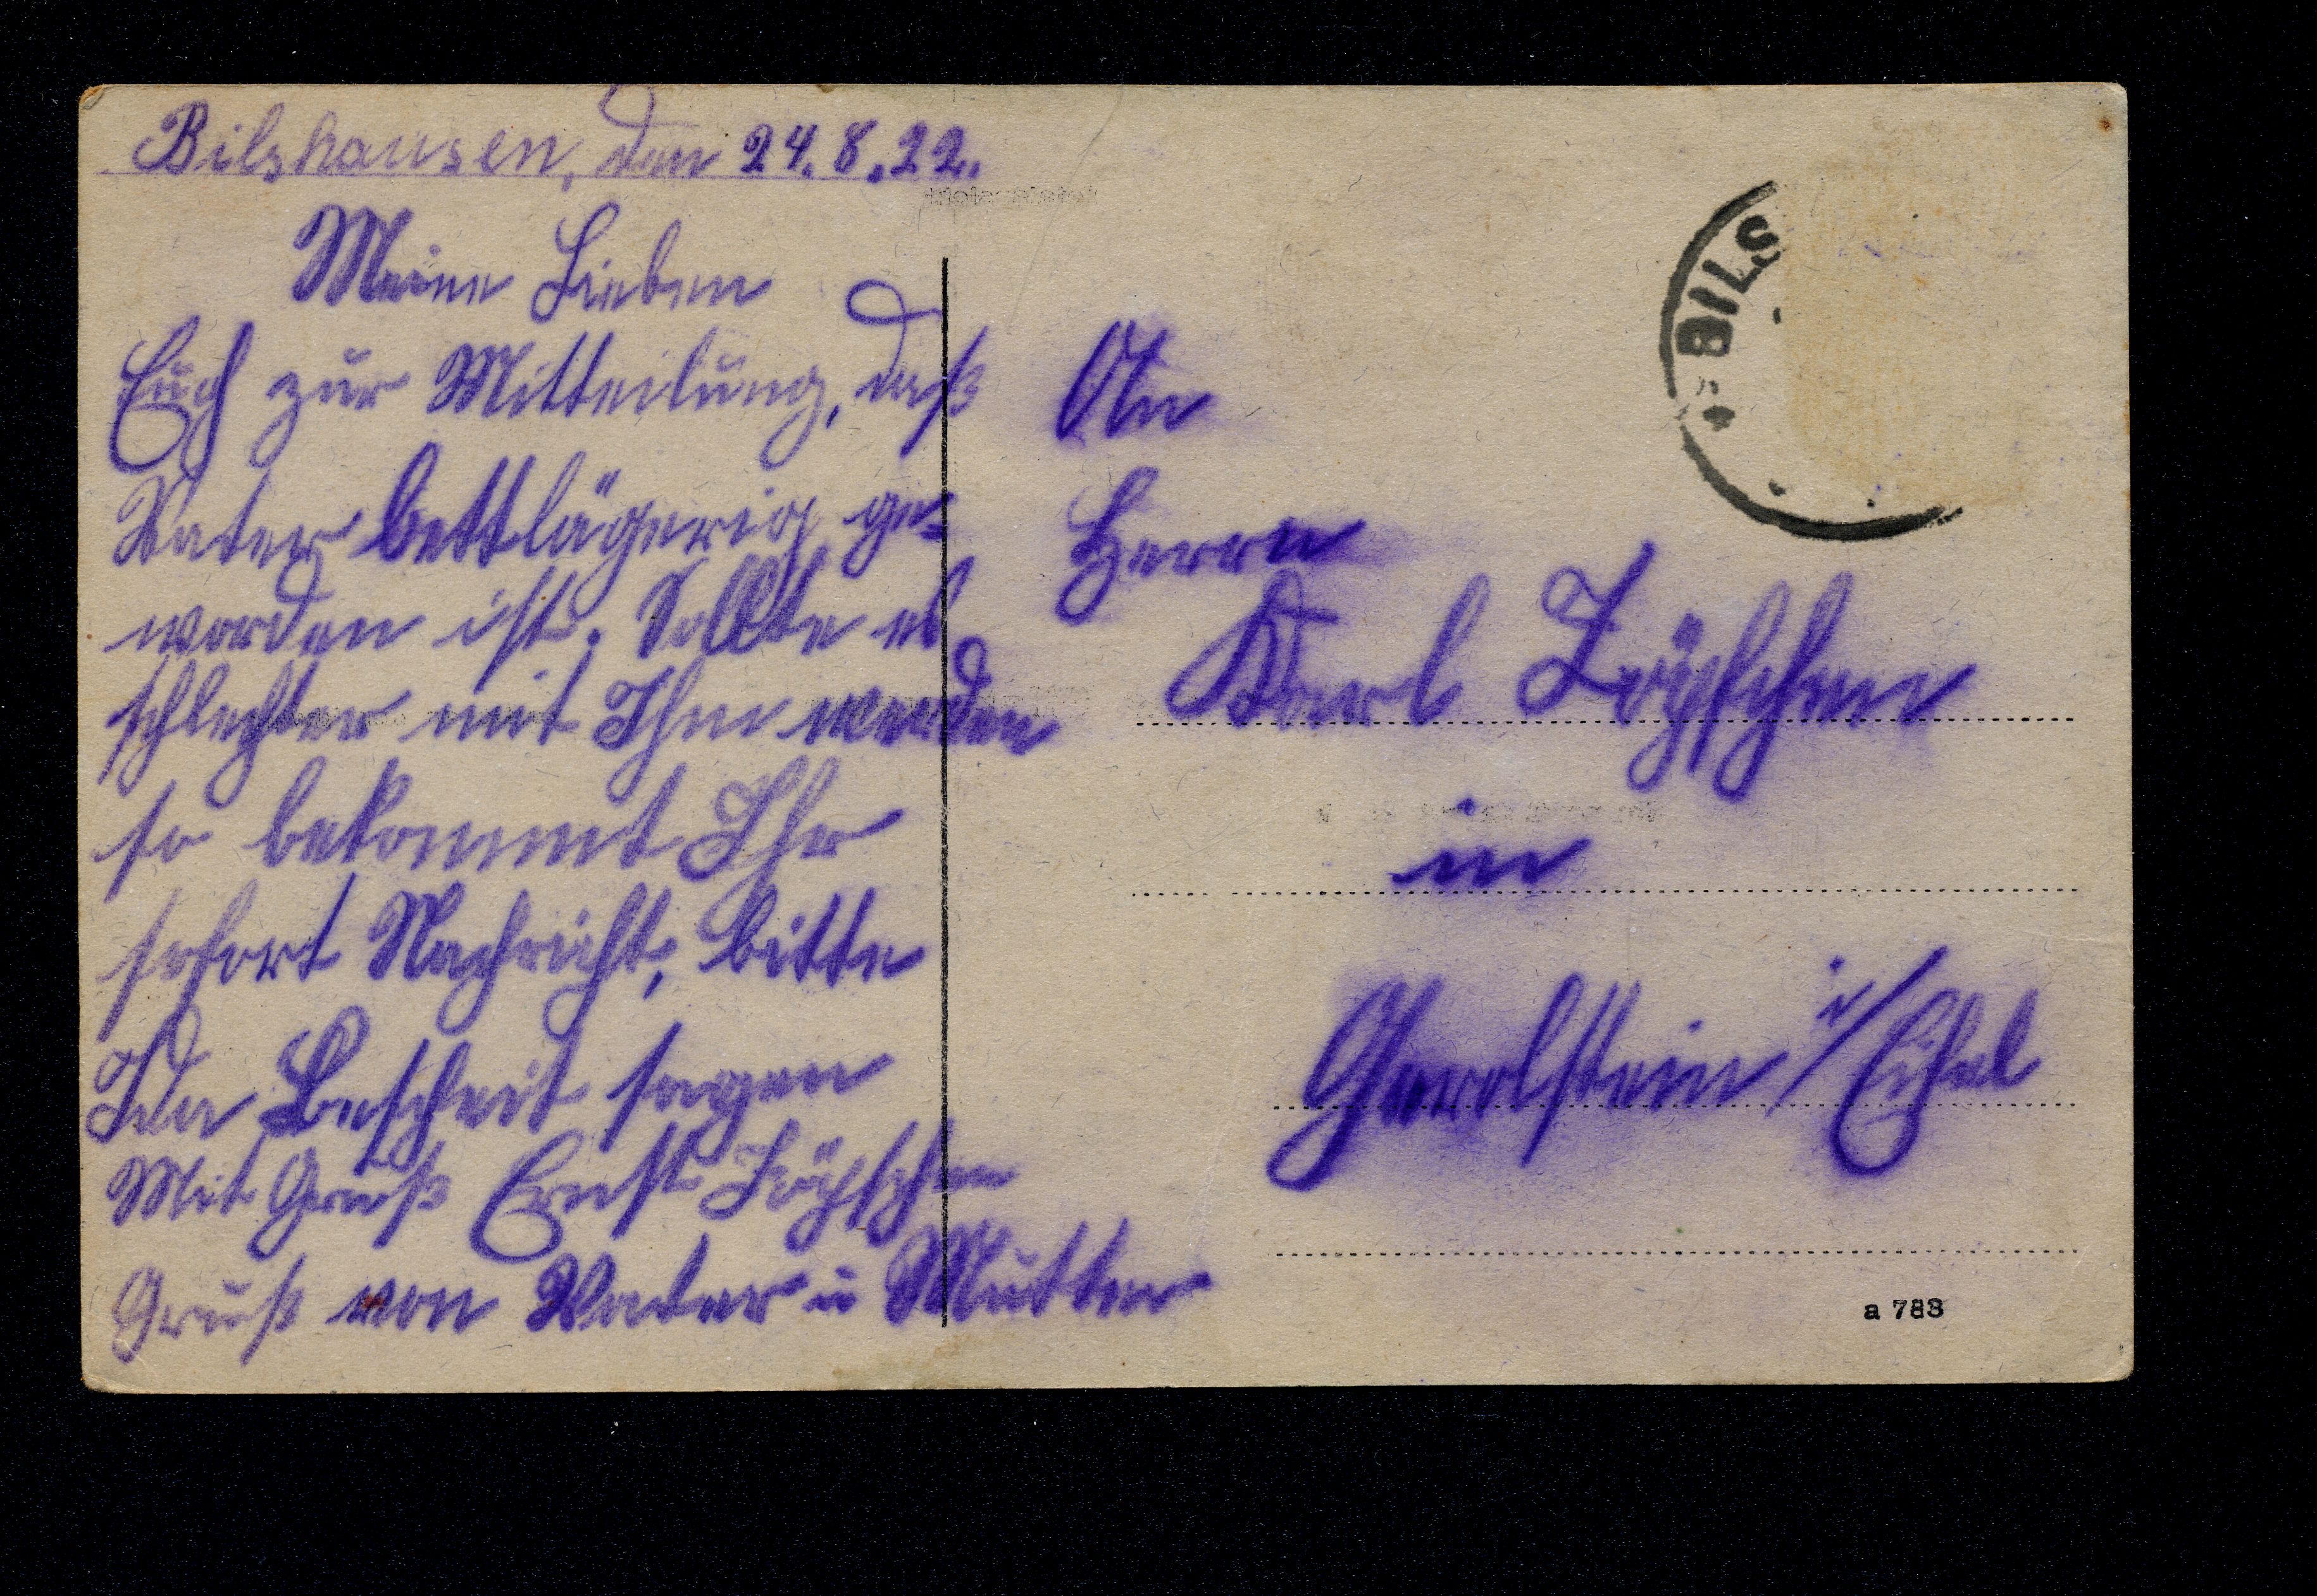 Bilshausen, den 24.8.22.
Meine Lieben
Euch zur Mitteilung, daß
Vater bettlägerig ge=
worden ist. Sollte es
schlechter mit Ihm werden
so bekommt Ihr
sofort Nachricht, bitte
Ida Bescheit sagen
Mit Gruß Ernst
Gruß von Vater u Mutter
BILS
An
Herrn
Karl
in
Gerolstein i/Eifel
a 788